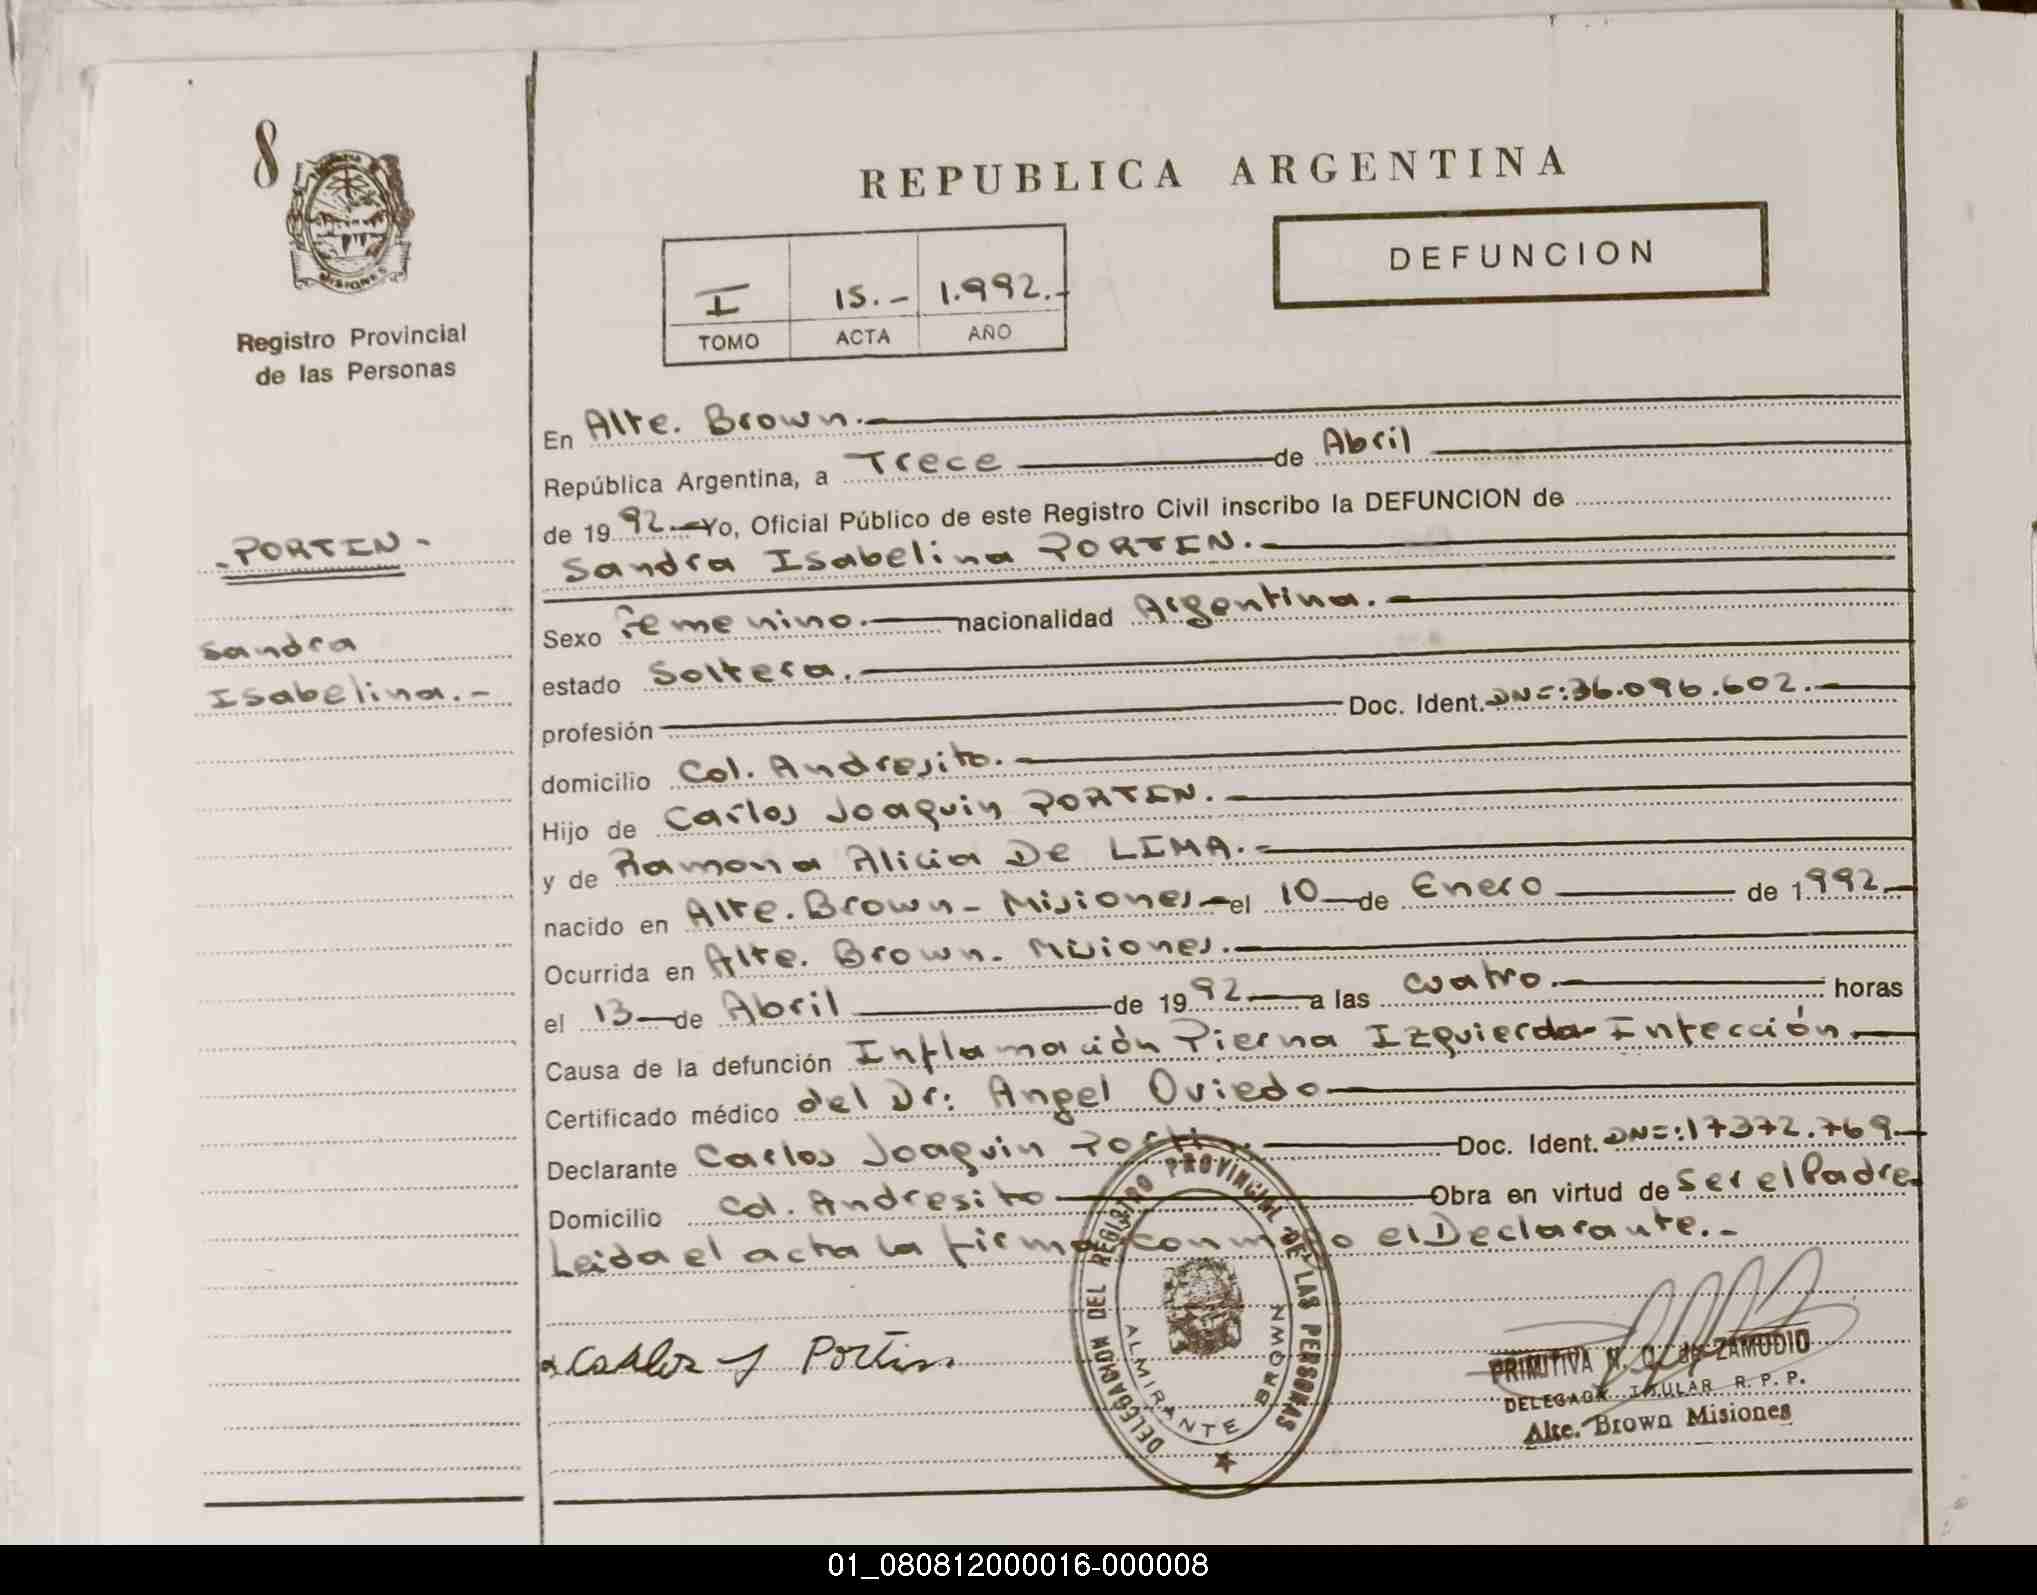 8
MISIONES
Registro Provincial
de las Personas
REPUBLICA ARGENTINA
DEFUNCION
I 15.- 1.992.-
TOMO ACTA AÑO
- PORTIN -
Sandra
Isabelina.-
En Alte. Brown.-
República Argentina, a Trece de Abril
de 19 92.- Yo, Oficial Público de este Registro Civil inscribo la DEFUNCION de
Sandra Isabelina PORTIN.-
Sexo Femenino.- nacionalidad Argentina.-
estado Soltera.-
profesión Doc. Ident. DNI: 36.096.602.-
domicilio Col. Andresito.-
Hijo de Carlos Joaquin PORTIN.-
y de Ramona Alicia De LIMA.-
nacido en Alte. Brown - Misiones - el 10 de Enero de 1992.-
Ocurrida en Alte. Brown. Misiones.-
el 13 de Abril de 19 92 a las cuatro.- horas
Causa de la defunción Inflamación Pierna Izquierda - Infección.-
Certificado médico del Dr: Angel Oviedo
Declarante Carlos Joaquin Portin.- Doc. Ident. DNI: 17372.769.-
Domicilio Col. Andresito Obra en virtud de Ser el Padre.
Leida el acta la firma conmigo el Declarante.-
Carlos J Portin.
DELEGACION DEL REGISTRO PROVINCIAL DE LAS PERSONAS
ALMIRANTE BROWN
PRIMITIVA N. de ZAMUDIO
DELEGADA TITULAR R. P. P.
Alte. Brown Misiones
01_080812000016-000008